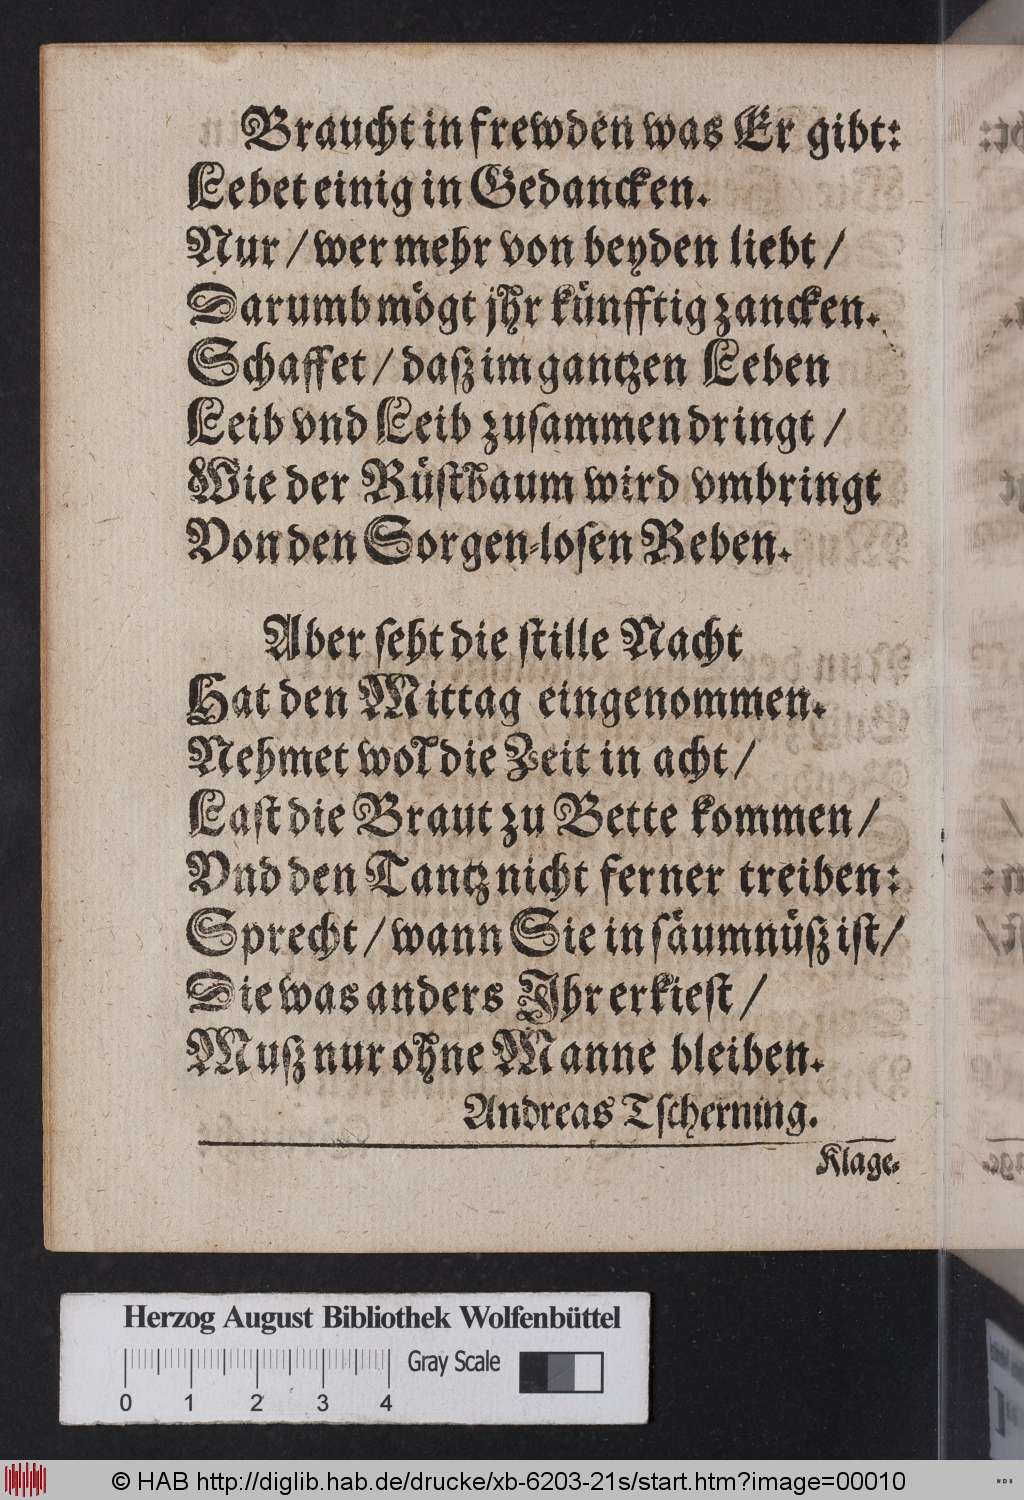 Braucht in frewden was Er gibt:
Lebet einig in Gedancken.
Nur / wer mehr von beyden liebt /
Darumb mögt jhr künfftig zancken.
Schaffet / daß im gantzen Leben
Leib vnd Leib zusammen dringt /
Wie der Rüstbaum wird vmbringt
Von den Sorgen-losen Reben.
Aber seht die stille Nacht
Hat den Mittag eingenommen.
Nehmet wol die Zeit in acht /
Last die Braut zu Bette kommen /
Vnd den Tantz nicht ferner treiben:
Sprecht / wann Sie in säumnüß ist /
Die was anders Jhr erkiest /
Muß nur ohne Manne bleiben.
Andreas Tscherning.
Klage-
Herzog August Bibliothek Wolfenbüttel
Gray Scale
0 1 2 3 4
© HAB http://diglib.hab.de/drucke/xb-6203-21s/start.htm?image=00010